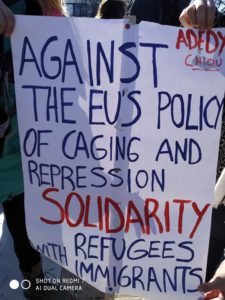 ADEDY
AGAINST
THE EU'S POLICY
OF CAGING AND
REPRESSION
SOLIDARITY
WITH REFUGEES
IMMIGRANTS
SHOT ON REDMI 7
AI DUAL CAMERA